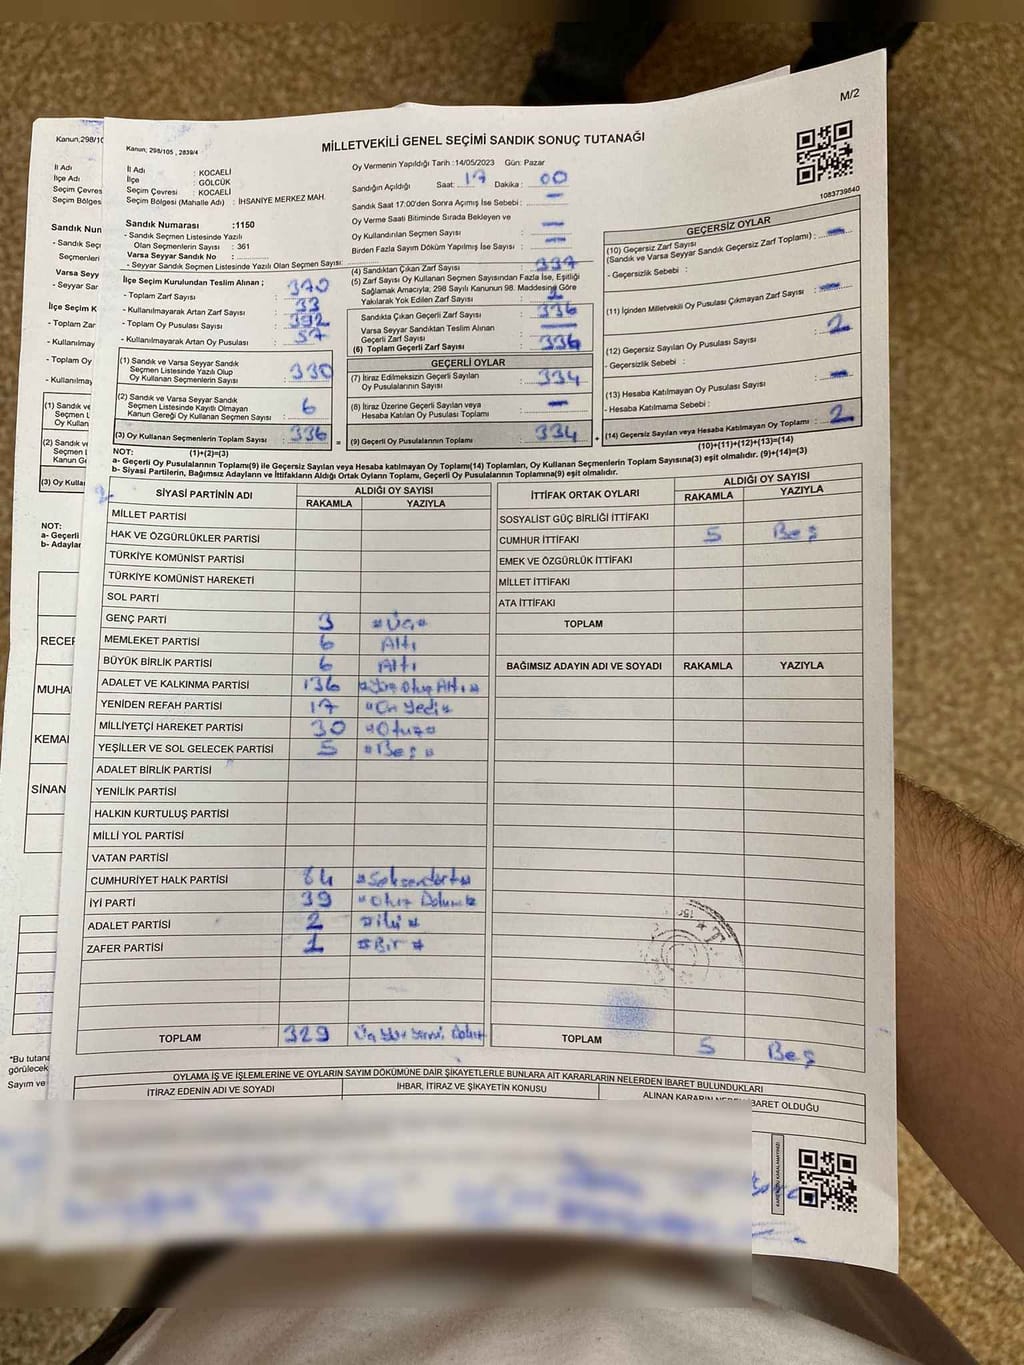 M/2
Kanun, 298/105 , 2839/4
MİLLETVEKİLİ GENEL SEÇİMİ SANDIK SONUÇ TUTANAĞI
1083739840
İl Adı : KOCAELİ
İlçe : GÖLCÜK
Seçim Çevresi : KOCAELİ
Seçim Bölgesi (Mahalle Adı) : İHSANİYE MERKEZ MAH.
Sandık Numarası :1150
- Sandık Seçmen Listesinde Yazılı
Olan Seçmenlerin Sayısı : 361
Varsa Seyyar Sandık No :
- Seyyar Sandık Seçmen Listesinde Yazılı Olan Seçmen Sayısı:
İlçe Seçim Kurulundan Teslim Alınan ;
- Toplam Zarf Sayısı : 370
- Kullanılmayarak Artan Zarf Sayısı : 33
- Toplam Oy Pusulası Sayısı : 392
- Kullanılmayarak Artan Oy Pusulası : 57
(1) Sandık ve Varsa Seyyar Sandık
Seçmen Listesinde Yazılı Olup
Oy Kullanan Seçmenlerin Sayısı : 330
(2) Sandık ve Varsa Seyyar Sandık
Seçmen Listesinde Kayıtlı Olmayan
Kanun Gereği Oy Kullanan Seçmen Sayısı : 6
(3) Oy Kullanan Seçmenlerin Toplam Sayısı : 336 =
(1)+(2)=(3)
Oy Vermenin Yapıldığı Tarih :14/05/2023 Gün: Pazar
Sandığın Açıldığı Saat: 17 Dakika : 00
Sandık Saat 17:00'den Sonra Açımış İse Sebebi : -
Oy Verme Saati Bitiminde Sırada Bekleyen ve
Oy Kullandırılan Seçmen Sayısı : -
Birden Fazla Sayım Döküm Yapılmış İse Sayısı : -
(4) Sandıktan Çıkan Zarf Sayısı : 337
(5) Zarf Sayısı Oy Kullanan Seçmen Sayısından Fazla İse, Eşitliği
Sağlamak Amacıyla; 298 Sayılı Kanunun 98. Maddesine Göre
Yakılarak Yok Edilen Zarf Sayısı : 1
Sandıkta Çıkan Geçerli Zarf Sayısı : 336
Varsa Seyyar Sandıktan Teslim Alınan
Geçerli Zarf Sayısı : -
(6) Toplam Geçerli Zarf Sayısı : 336
GEÇERLİ OYLAR
(7) İtiraz Edilmeksizin Geçerli Sayılan
Oy Pusulalarının Sayısı : 334
(8) İtiraz Üzerine Geçerli Sayılan veya
Hesaba Katılan Oy Pusulası Toplamı : -
(9) Geçerli Oy Pusulalarının Toplamı : 334 +
GEÇERSİZ OYLAR
(10) Geçersiz Zarf Sayısı
(Sandık ve Varsa Seyyar Sandık Geçersiz Zarf Toplamı) : -
- Geçersizlik Sebebi :
(11) İçinden Milletvekili Oy Pusulası Çıkmayan Zarf Sayısı : -
(12) Geçersiz Sayılan Oy Pusulası Sayısı : 2
- Geçersizlik Sebebi :
(13) Hesaba Katılmayan Oy Pusulası Sayısı : -
- Hesaba Katılmama Sebebi :
(14) Geçersiz Sayılan veya Hesaba Katılmayan Oy Toplamı : 2
(10)+(11)+(12)+(13)=(14)
NOT:
a- Geçerli Oy Pusulalarının Toplamı(9) ile Geçersiz Sayılan veya Hesaba katılmayan Oy Toplamı(14) Toplamları, Oy Kullanan Seçmenlerin Toplam Sayısına(3) eşit olmalıdır. (9)+(14)=(3)
b- Siyasi Partilerin, Bağımsız Adayların ve İttifakların Aldığı Ortak Oyların Toplamı, Geçerli Oy Pusulalarının Toplamına(9) eşit olmalıdır.
SİYASİ PARTİNİN ADI ALDIĞI OY SAYISI
RAKAMLA YAZIYLA
MİLLET PARTİSİ
HAK VE ÖZGÜRLÜKLER PARTİSİ
TÜRKİYE KOMÜNİST PARTİSİ
TÜRKİYE KOMÜNİST HAREKETİ
SOL PARTİ
GENÇ PARTİ 3 Üç
MEMLEKET PARTİSİ 6 Altı
BÜYÜK BİRLİK PARTİSİ 6 Altı
ADALET VE KALKINMA PARTİSİ 136 Yüz Otuz Altı
YENİDEN REFAH PARTİSİ 17 On Yedi
MİLLİYETÇİ HAREKET PARTİSİ 30 Otuz
YEŞİLLER VE SOL GELECEK PARTİSİ 5 Beş
ADALET BİRLİK PARTİSİ
YENİLİK PARTİSİ
HALKIN KURTULUŞ PARTİSİ
MİLLİ YOL PARTİSİ
VATAN PARTİSİ
CUMHURİYET HALK PARTİSİ 84 Seksendört
İYİ PARTİ 39 Otuz Dokuz
ADALET PARTİSİ 2 İki
ZAFER PARTİSİ 1 Bir
TOPLAM 329 Üç Yüz Yirmi Dokuz
İTTİFAK ORTAK OYLARI ALDIĞI OY SAYISI
RAKAMLA YAZIYLA
SOSYALİST GÜÇ BİRLİĞİ İTTİFAKI
CUMHUR İTTİFAKI 5 Beş
EMEK VE ÖZGÜRLÜK İTTİFAKI
MİLLET İTTİFAKI
ATA İTTİFAKI
TOPLAM
BAĞIMSIZ ADAYIN ADI VE SOYADI RAKAMLA YAZIYLA
TOPLAM 5 Beş
OYLAMA İŞ VE İŞLEMLERİNE VE OYLARIN SAYIM DÖKÜMÜNE DAİR ŞİKAYETLERLE BUNLARA AİT KARARLARIN NELERDEN İBARET BULUNDUKLARI
İTİRAZ EDENİN ADI VE SOYADI İHBAR, İTİRAZ VE ŞİKAYETİN KONUSU ALINAN KARARIN NEDEN İBARET OLDUĞU
Kanun,298/10
İl Adı
İlçe Adı
Seçim Çevres
Seçim Bölges
Sandık Nun
- Sandık Seçı
Seçmenleri
Varsa Seyy
- Seyyar Sar
İlçe Seçim K
- Toplam Zar
- Kullanılmay
- Toplam Oy
- Kullanılmay
(1) Sandık ve
Seçmen L
Oy Kullan
(2) Sandık ve
Seçmen L
Kanun G
(3) Oy Kullan
NOT:
a- Geçerli
b- Adaylar
RECEF
MUHA
KEMAI
SİNAN
*Bu tutana
görülecek
Sayım ve